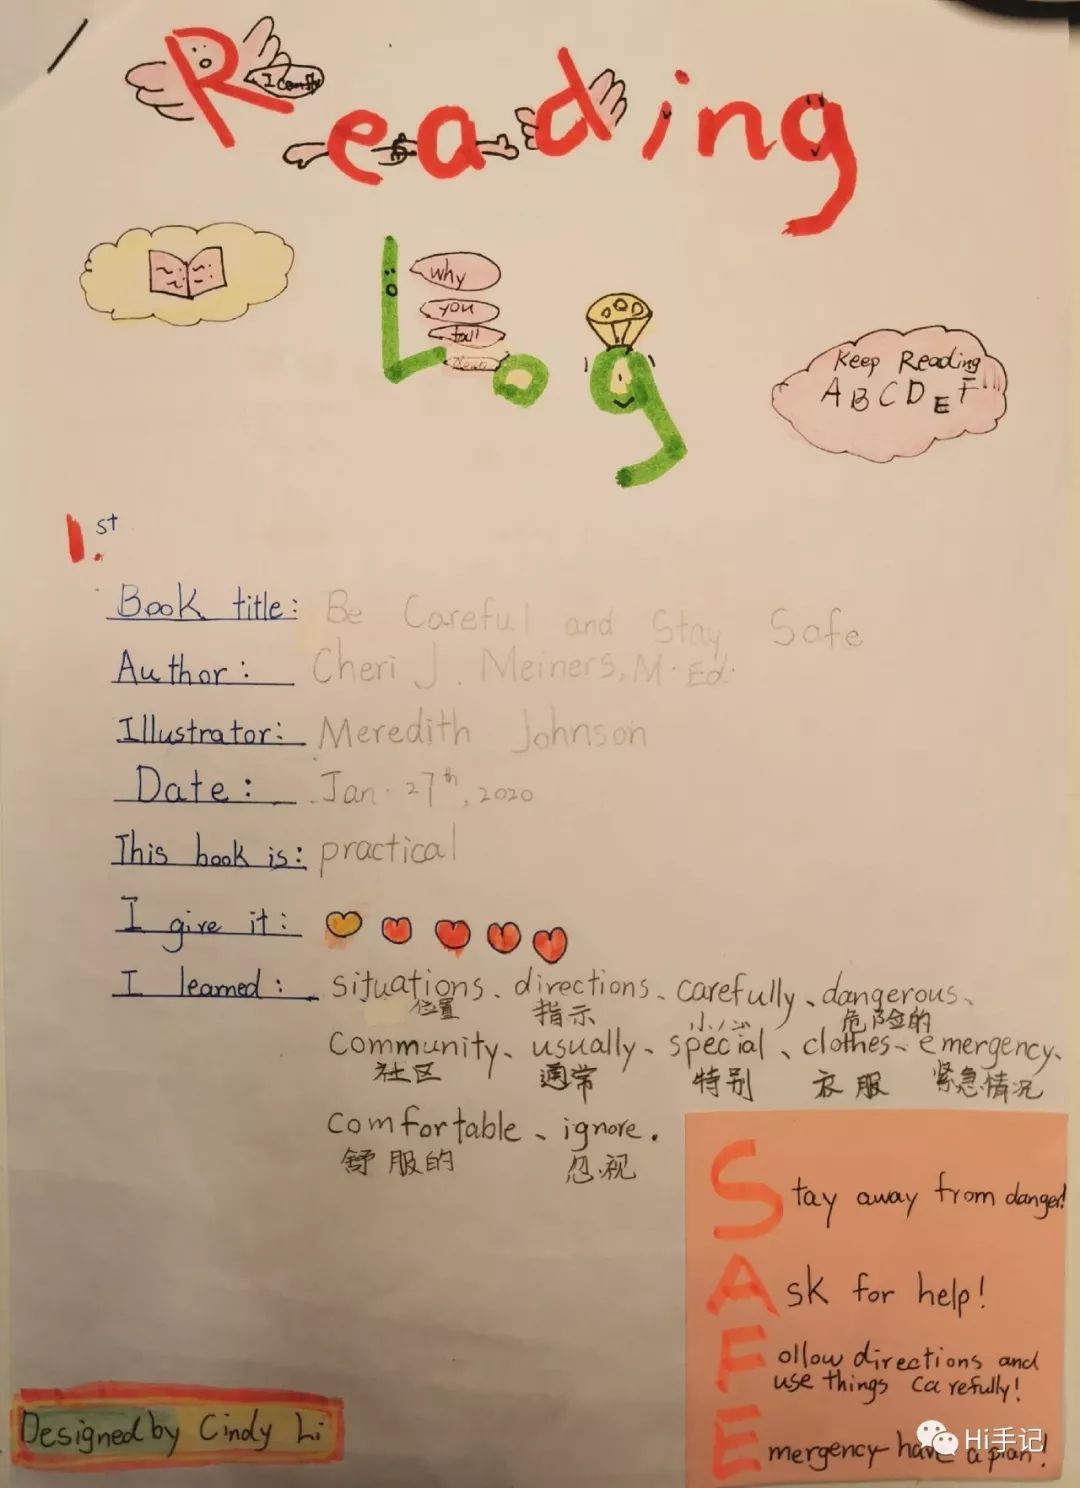 Reading
Log
why
you
fall
down
Keep Reading
A B C D E F
1.st
Book title: Be Careful and Stay Safe
Author: Cheri J. Meiners, M.Ed.
Illustrator: Meredith Johnson
Date: Jan. 27th, 2020
This book is: practical
I give it:
I learned: situations、directions、carefully、dangerous、
位置 指示 小心 危险的
community、usually、special、clothes、emergency、
社区 通常 特别 衣服 紧急情况
comfortable、ignore.
舒服的 忽视
Stay away from danger!
Ask for help!
Follow directions and
use things carefully!
Emergency-have a plan!
Designed by Cindy Li
Hi手记